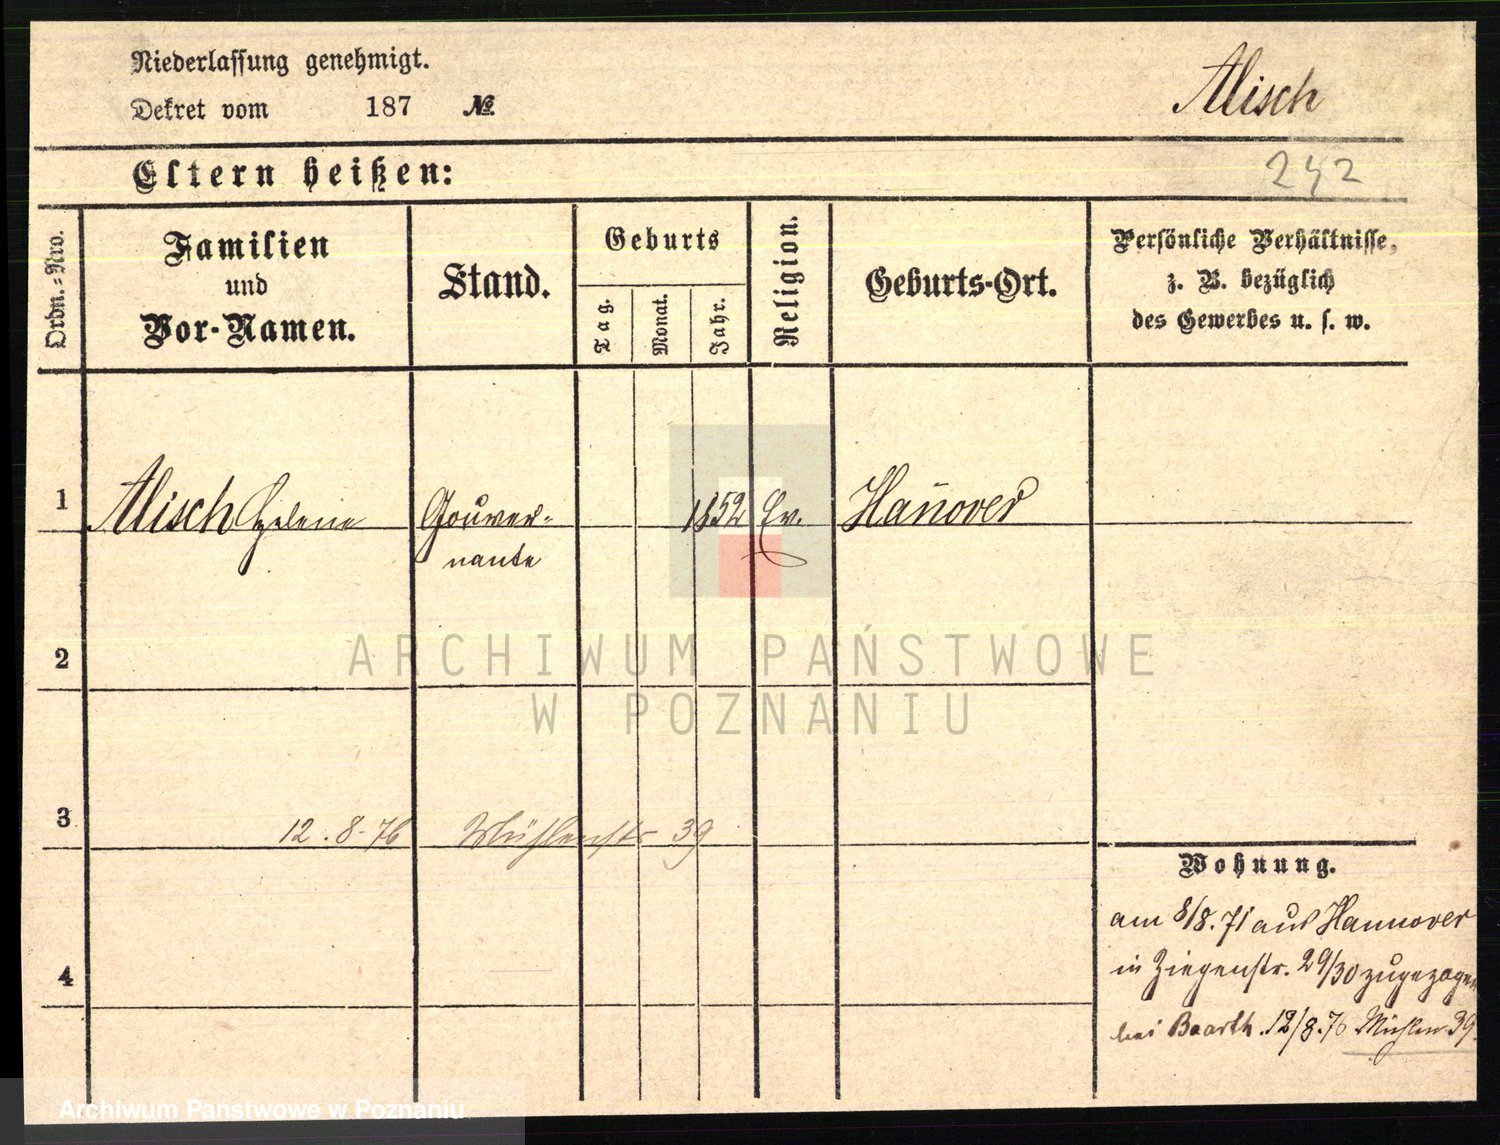 Niederlassung genehmigt.
Dekret vom 187 №
Alisch
Eltern heißen:
242
Ordn.-Nro.
Familien
und
Vor-Namen.
Stand.
Geburts
Tag.
Monat.
Jahr.
Religion.
Geburts-Ort.
Persönliche Verhältnisse,
z. B. bezüglich
des Gewerbes u. s. w.
1 Alisch Helene Gouver-
nante
1852 Ev. Han̄over
2
ARCHIWUM PAŃSTWOWE
W POZNANIU
3 12.8.76 Mühlenstr 39
Wohnung.
am 8/8.71 aus Hannover
in Ziegenstr. 29/30 zugezogen
bei Baarth. 12/8.76 Mühlen 39.
4
Archiwum Państwowe w Poznaniu